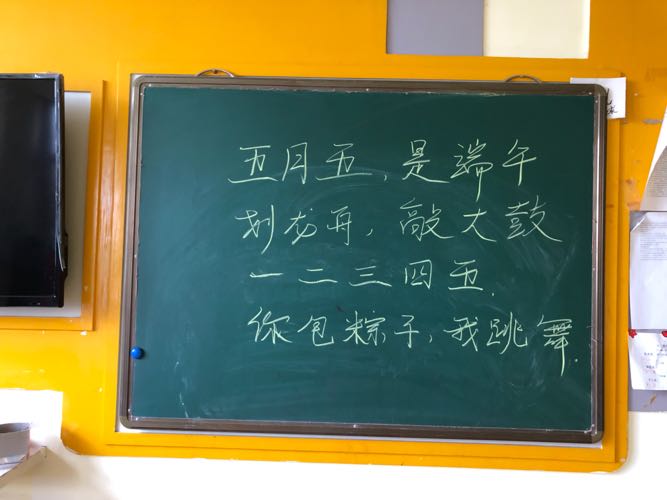 五月五，是端午
划龙舟，敲大鼓
一二三四五.
你包粽子，我跳舞.